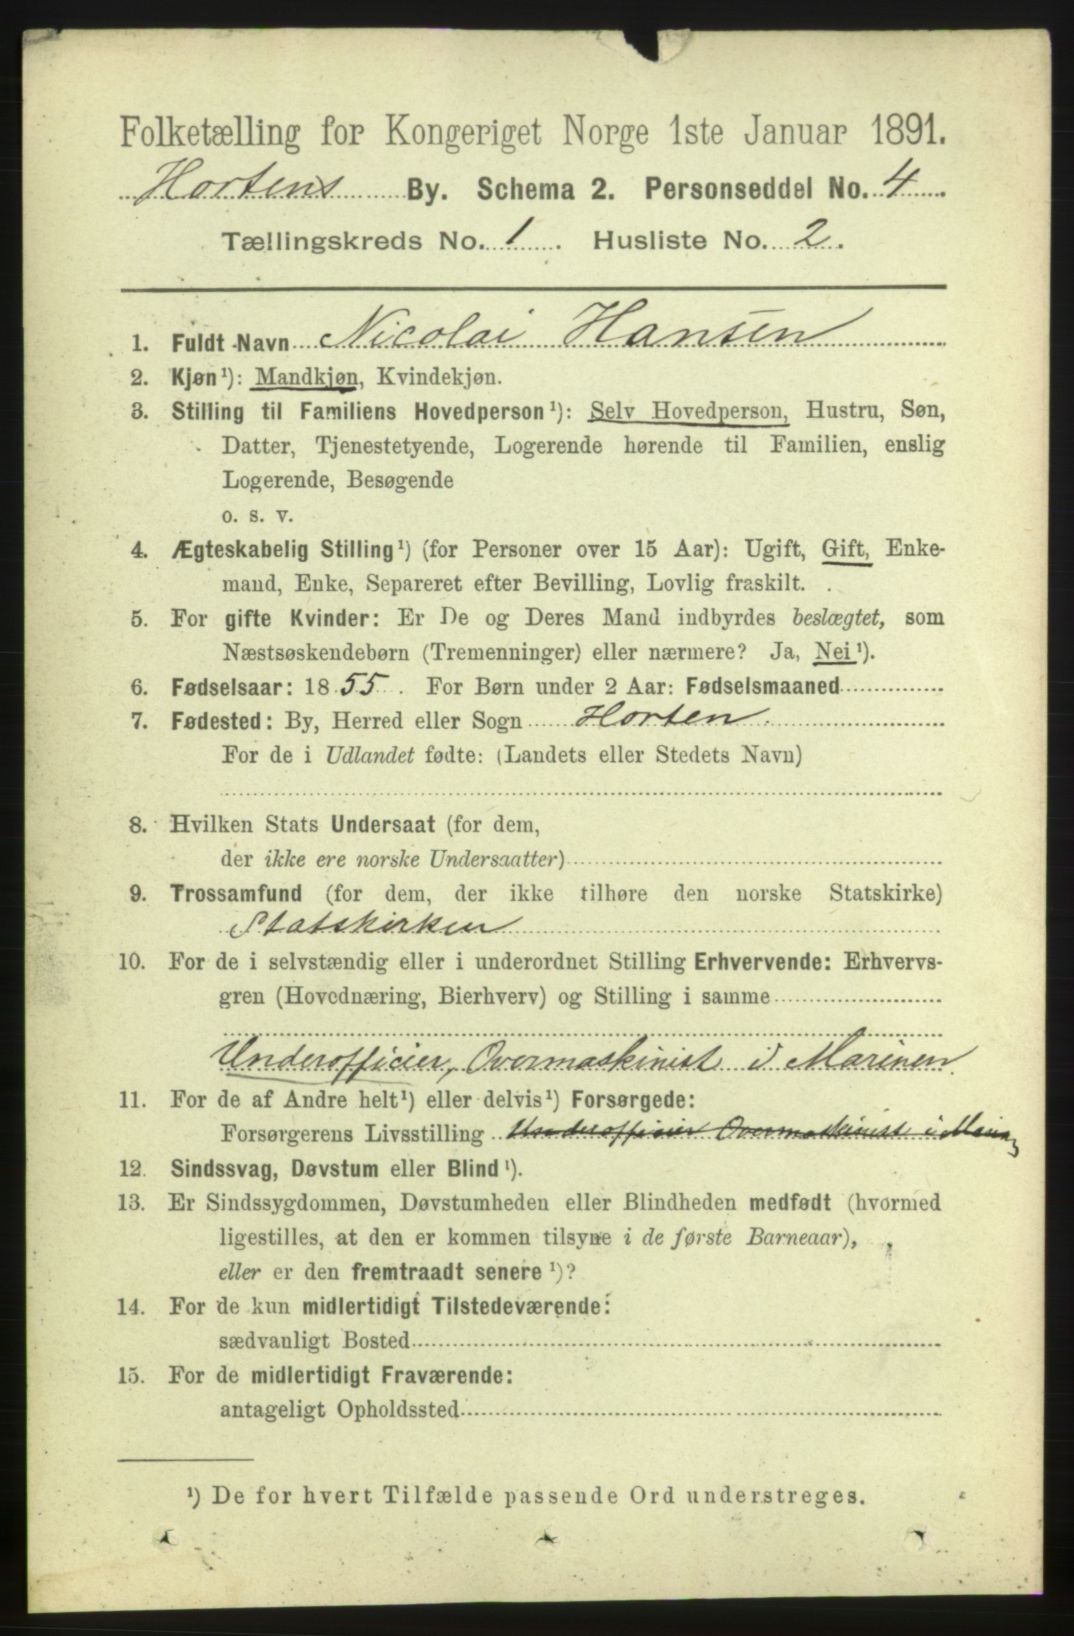 Folketælling for Kongeriget Norge 1ste Januar 1891.
Hortens By. Schema 2. Personseddel No. 4.
Tællingskreds No. 1. Husliste No. 2.
1. Fuldt Navn Nicolai Hansen
2. Kjøn¹): Mandkjøn, Kvindekjøn.
3. Stilling til Familiens Hovedperson¹): Selv Hovedperson, Hustru, Søn,
Datter, Tjenestetyende, Logerende hørende til Familien, enslig
Logerende, Besøgende
o. s. v.
4. Ægteskabelig Stilling¹) (for Personer over 15 Aar): Ugift, Gift, Enke-
mand, Enke, Separeret efter Bevilling, Lovlig fraskilt.
5. For gifte Kvinder: Er De og Deres Mand indbyrdes beslægtet, som
Næstsøskendebørn (Tremenninger) eller nærmere? Ja, Nei¹).
6. Fødselsaar: 1855. For Børn under 2 Aar: Fødselsmaaned
7. Fødested: By, Herred eller Sogn Horten.
For de i Udlandet fødte: (Landets eller Stedets Navn)
8. Hvilken Stats Undersaat (for dem,
der ikke ere norske Undersaatter)
9. Trossamfund (for dem, der ikke tilhøre den norske Statskirke)
Statskirken
10. For de i selvstændig eller i underordnet Stilling Erhvervende: Erhvervs-
gren (Hovednæring, Bierhverv) og Stilling i samme
Underofficier, Overmaskinist i Marinen.
11. For de af Andre helt¹) eller delvis¹) Forsørgede:
Forsørgerens Livsstilling Underofficier Overmaskinist i Marin
12. Sindssvag, Døvstum eller Blind¹).
13. Er Sindssygdommen, Døvstumheden eller Blindheden medfødt (hvormed
ligestilles, at den er kommen tilsyne i de første Barneaar),
eller er den fremtraadt senere¹)?
14. For de kun midlertidigt Tilstedeværende:
sædvanligt Bosted
15. For de midlertidigt Fraværende:
antageligt Opholdssted
¹) De for hvert Tilfælde passende Ord understreges.